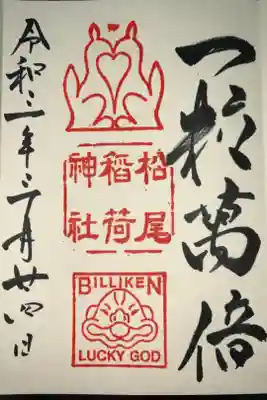 一粒萬倍
松尾
稲荷
神社
BILLIKEN
LUCKY GOD
令和二年三月廿四日